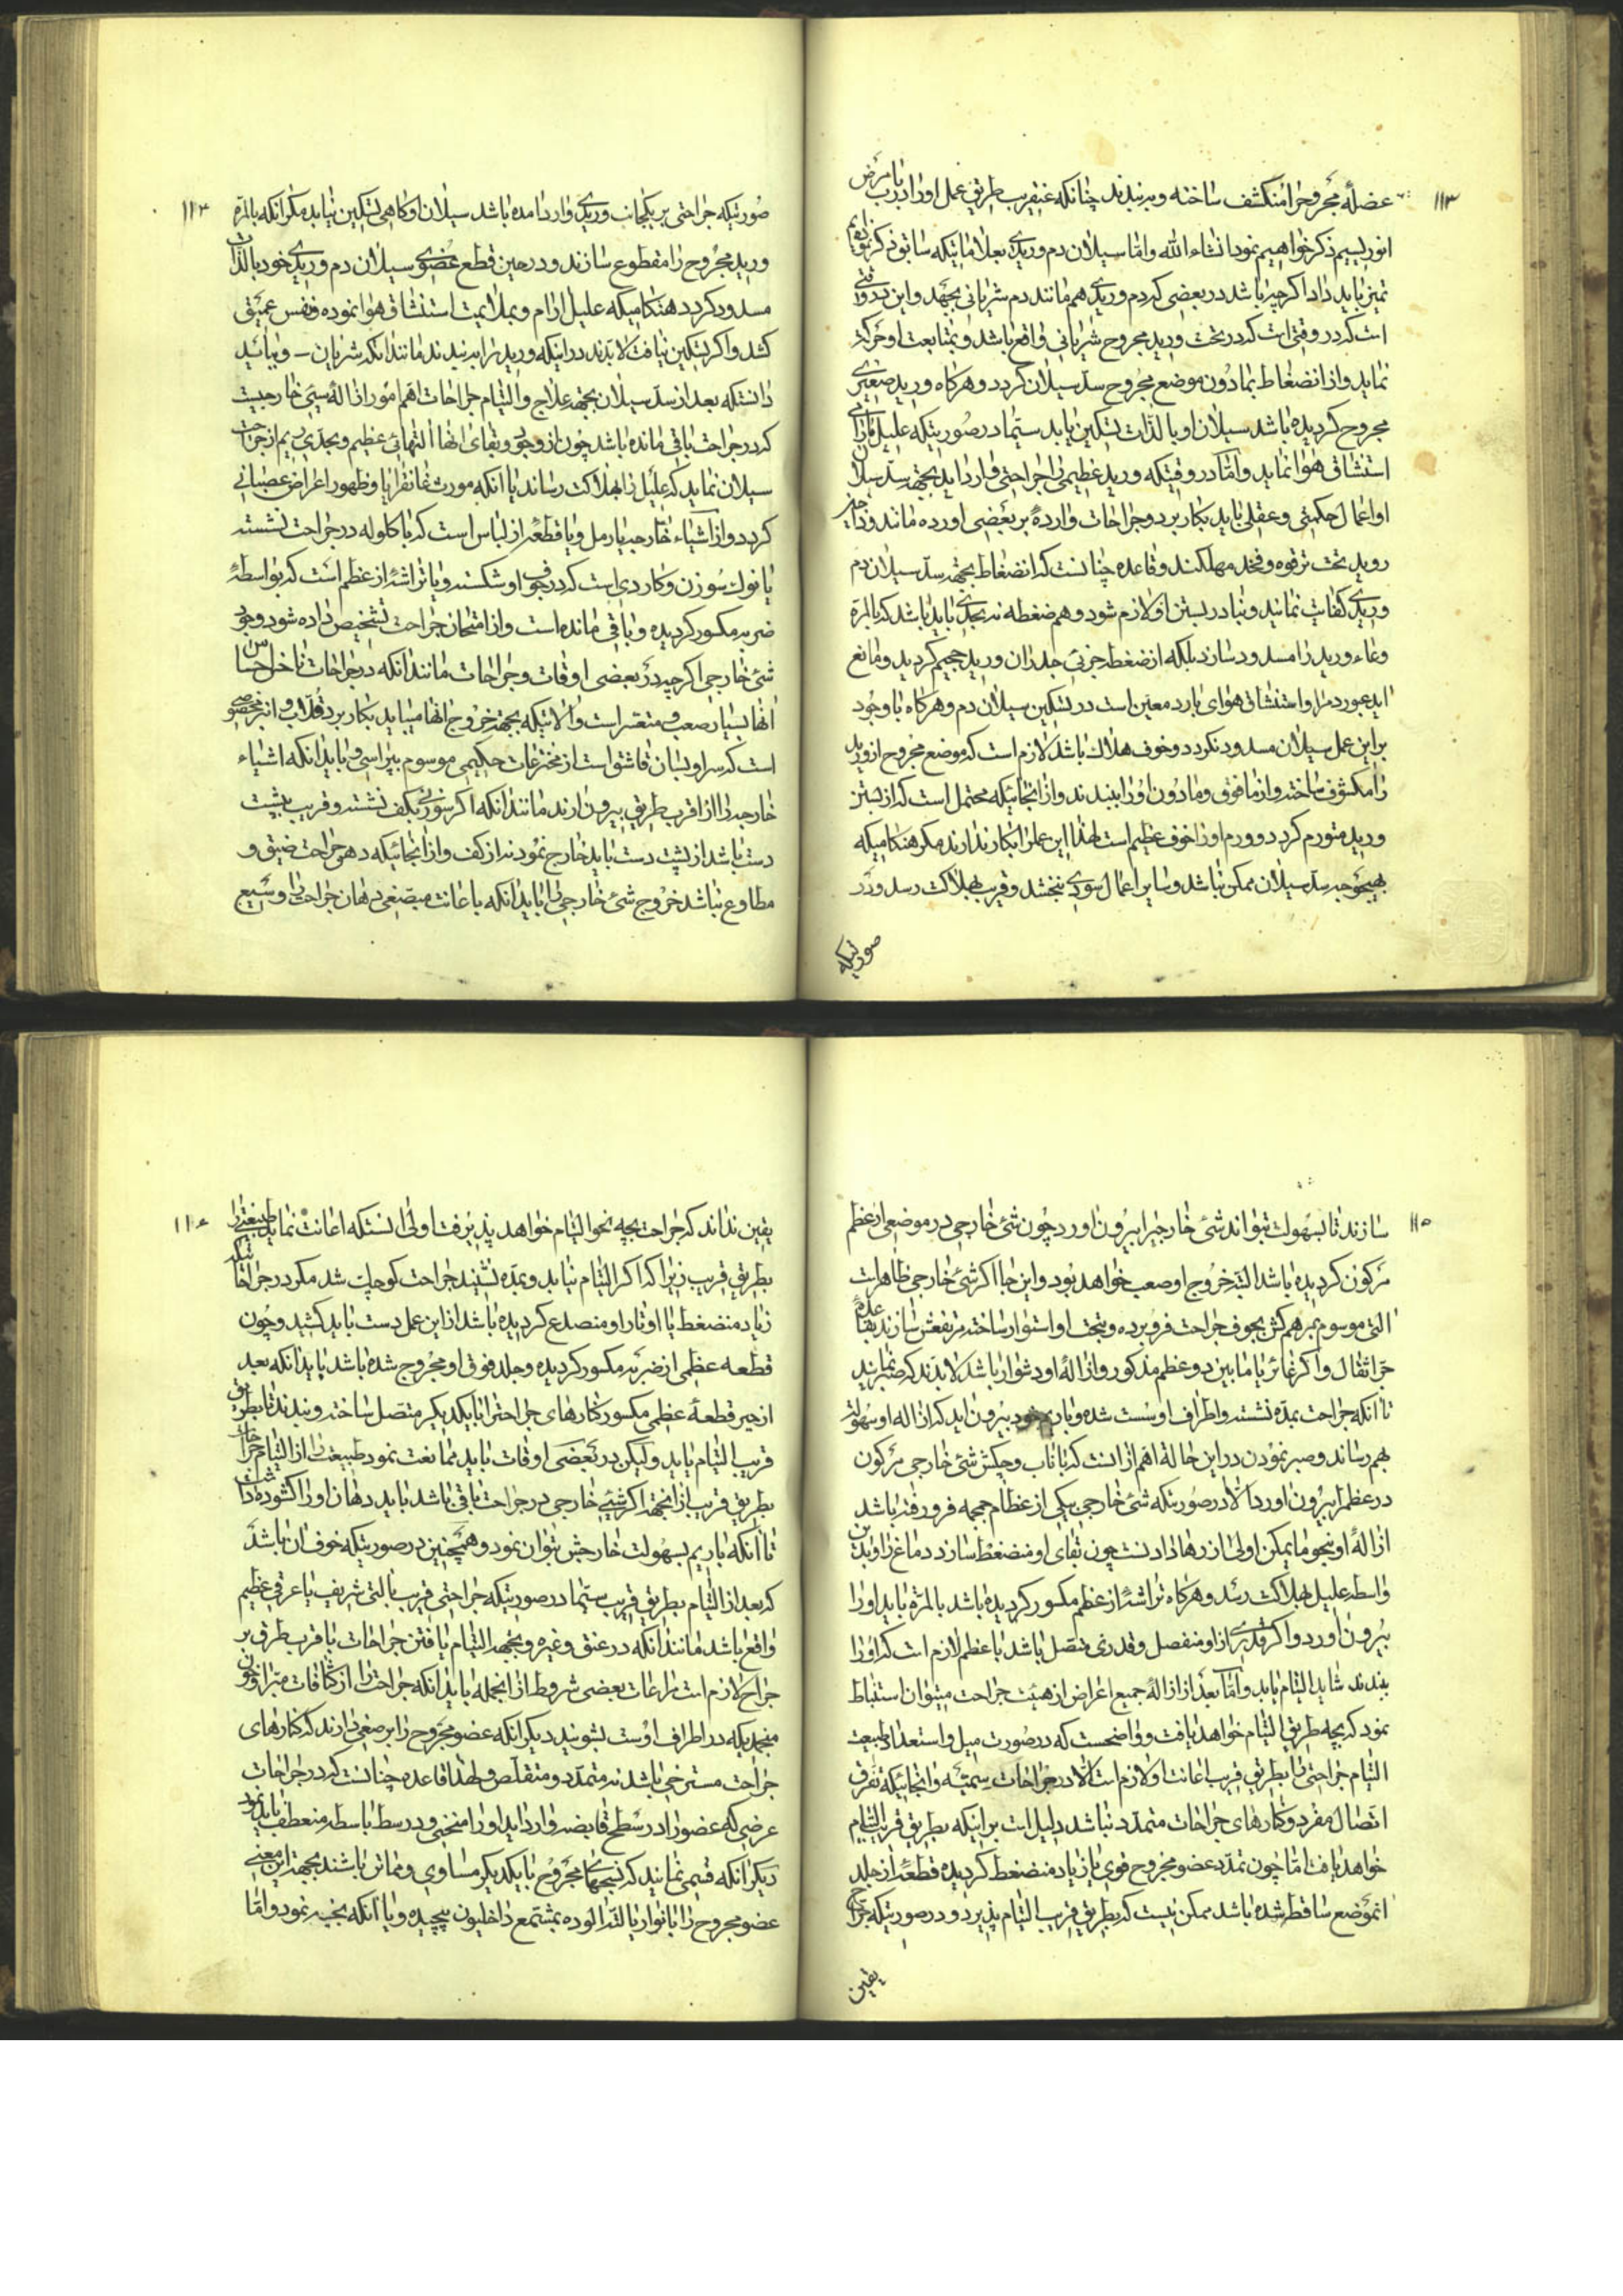 ۱۱۳
عضلهٔ مجروح را منکشف ساخته و بر بندند چنانکه عنقریب طریق عمل او را در باب مرض
انوریسیم ذکر خواهیم نمود انشاء الله و اما سیلان دم وریدی بعلاماتیکه سابق ذکر نمودیم
تمیز باید داد اگرچه باشد در بعضی که دم وریدی هم مانند دم شریانی بجهد و این در وقتی
است که در وقتی است که در تحت ورید مجروح شریانی واقع باشد و بمتابعت او حرکت
نماید و از انضغاط بمادون موضع مجروح سد سیلان کردد و هرکاه ورید صغیری
مجروح کردیده باشد سیلان او بالذات تسکین یابد سیما در صورتیکه علیل
استنشاق هوا نماید و اما در وقتیکه ورید عظیمی را جراحتی وارد اید بجهة سد سیلان
او اعمال حکمتی و عقلی باید بکار برد و جراحات واردهٔ بر بعضی اورده مانند وداجین
و ورید تحت ترقوه و فخذ مهلکند و قاعده چنانست که انضغاط بجهة سد سیلان دم
وریدی کفایت نمایند و بنادر بستن او لازم شود و هم ضغطه نه بحدی باید باشد که بالمرة
وعاء ورید را مسدود سازد بلکه از ضغط جزئی جدران ورید حجیم کردید و مانع
اید عبور دم را و استنشاق هوای بارد معین است در تسکین سیلان دم و هرکاه با وجود
بر این عمل سیلان مسدود نکردد و خوف هلاک باشد لازم است که موضع مجروح از ورید
را مکشوف ساخته و از مافوق و مادون او را ببندند و از انجائیکه محتمل است که از بستن
ورید متورم کردد و ورم او را خوف عظیم است لهذا این عمل را بکار ندارند مکر هنکامیکه
بهیچوجه سد سیلان ممکن نباشد و سایر اعمال سودی نبخشد و قریب بهلاکت رسد و در
صورتیکه
۱۱۴
صورتیکه جراحتی بر یکجانب وریدی وارد امده باشد سیلان او کاهی تسکین نیابد مکر انکه بالمرة
ورید مجروح را مقطوع سازند و در حین قطع عضوی سیلان دم وریدی خود بالذات
مسدود کردد هنکامیکه علیل ارام و بملایمت استنشاق هوا نموده و نفس عمیق
کشد و اکر تسکین نیافت لابدند در اینکه ورید را بر بندند مانند انکه شریان – و بباید
دانستکه بعد از سد سیلان بجهة علاج و التیام جراحات اهم امور ازالهٔ شیئ خارجیست
که در جراحت باقی مانده باشد چون از وجود و بقای انها التهابی عظیم و بحدی ریم از جراحت
سیلان نماید که علیل را بهلاکت رساند یا انکه مورث غانغرایا و ظهور اعراض عصبانی
کردد و از اشیاء خارجیه یا رمل و یا قطعهٔ از لباس است که با کلوله در جراحت نشسته
یا نوک سوزن و کاردی است که در جوف او شکسته و یا تراشهٔ از عظم است که بواسطهٔ
ضربه مکسور کردیده و باقی مانده است و از امتحان جراحت تشخیص داده شود وجود
شیئ خارجی اکرچه در بعضی اوقات و جراحات مانند انکه در جراحات احساس
انها بسیار صعب و متعسر است و الاتیکه بجهة خروج انها میباید بکار برد قلاب و انبر مخصوصی
است که سر او بسان قاشق است از مخترعات حکیمی موسوم بپراسی و باید انکه اشیاء
خارجیه را از اقرب طریق بیرون ارند مانند انکه اکر سوزنی بکف نشسته و قریب بپشت
دست باشد از پشت دست باید خارج نمود نه از کف و از انجائیکه دهن جراحت ضیق و
مطاوع نباشد خروج شیئ خارجی را باید انکه باعانت مبضعی دهان جراحت را وسیع
۱۱۵
سازند تا بسهولت بتوانند شیئ خارجیرا بیرون اورد چون شیئ خارجی در موضعی از عظم
مرکوز کردیده باشد البته خروج او صعب خواهد بود و اینجا اکر شیئ خارجی ظاهر است
التی موسوم بمرهم کش بجوف جراحت فرو برده و بتحت او استوار ساخته مرتفعش سازند بقاعدهٔ
جر اثقال و اکر غائر یا مابین دو عظم مذکور و ازالهٔ او دشوار باشد لابدند که صبر نمایند
تا انکه جراحت بمده نشسته و اطراف او سست شده و با ریم خود بیرون اید که ازاله او سهولت
بهم رساند و صبر نمودن در این حاله اهم از انست که با تاب و چکش شیئ خارجی مرکوز
در عظم را بیرون اورد الا در صورتیکه شیئ خارجی بیکی از عظام جمجمه فرو رفته باشد
ازالهٔ او بنحو ما یمکن اولی از رها دادنست چون بقای او منضغط سازد دماغ را و بدین
واسطه علیل بهلاکت رسد و هرکاه تراشهٔ از عظم مکسور کردیده باشد بالمرة باید او را
بیرون اورد و اکر قدری از او منفصل و قدری متصل باشد با عظم لازم است که او را
ببندند شاید التیام یابد و اما بعد از ازالهٔ جمیع اعراض از هیئت جراحت میتوان استنباط
نمود که بچه طریق التیام خواهد یافت و واضحست که در صورت میل و استعداد طبیعت
التیام جراحتی را بطریق قریب اعانت او لازم است الا در جراحات سمیّه و انجائیکه تفرق
اتصال مفرد و کنارهای جراحات متمدد نباشد دلیل است بر اینکه بطریق قریب التیام
خواهد یافت اما چون تمدد عضو مجروح قوی یا زیاد منضغط کردیده قطعهٔ از جلد
انموضع ساقط شده باشد ممکن نیست که بطریق قریب التیام پذیرد و در صورتیکه جراح
یقین
۱۱۶
یقین نداند که جراحت بچه نحو التیام خواهد پذیرفت اولی انستکه اعانت نماید طبیعت را
بطریق قریب زیرا که اکر التیام نیابد و بمده نشیند جراحت کوچک شد مکر در جراحاتیکه
زیاد منضغط یا اوتار او منصدع کردیده باشد از این عمل دست باید کشید و چون
قطعه عظمی از ضربه مکسور کردیده و جلد فوق او مجروح شده باشد باید انکه بعد
از جبر قطعهٔ عظمی مکسور کنارهای جراحترا با یکدیکر متصل ساخته و بندند تا بطریق
قریب التیام یابد ولیکن در بعضی اوقات باید ممانعت نمود طبیعت را از التیام جراحات
بطریق قریب از انجهة اکر شیئی خارجی در جراحت باقی باشد باید دهان او را کشوده داشت
تا انکه با ریم بسهولت خارجش بتوان نمود و همچنین در صورتیکه خوف ان باشد
که بعد از التیام بطریق قریب سیما در صورتیکه جراحتی قریب بالتی شریف یا عرقی عظیم
واقع باشد مانند انکه در عنق و غیره و بجهة التیام یافتن جراحات باقرب طرق بر
جراح لازم است مراعات بعضی شروط از انجمله باید انکه جراحت را از کثافات مبرا و خون
منجمدیکه در اطراف اوست بشویند دیکر انکه عضو مجروح را بر وضعی دارند که کنارهای
جراحت مسترخی باشد نه متمدد و متقلص و لهذا قاعده چنانست که در جراحات
عرضی که عضو را در سطح قابضه وارد اید او را منحنی و در سطح باسطه منعطف باید نمود
دیکر انکه قسمی نمایند که نسجهای مجروح با یکدیکر مساوی و مماس باشند بجهة این معنی
عضو مجروح را با نوار یا لتهٔ الوده بمشمع داخلیون پیچیده و یا انکه بخیه نمود و اما